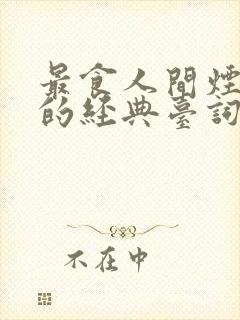 最食人間煙
的經典臺詞
不在中